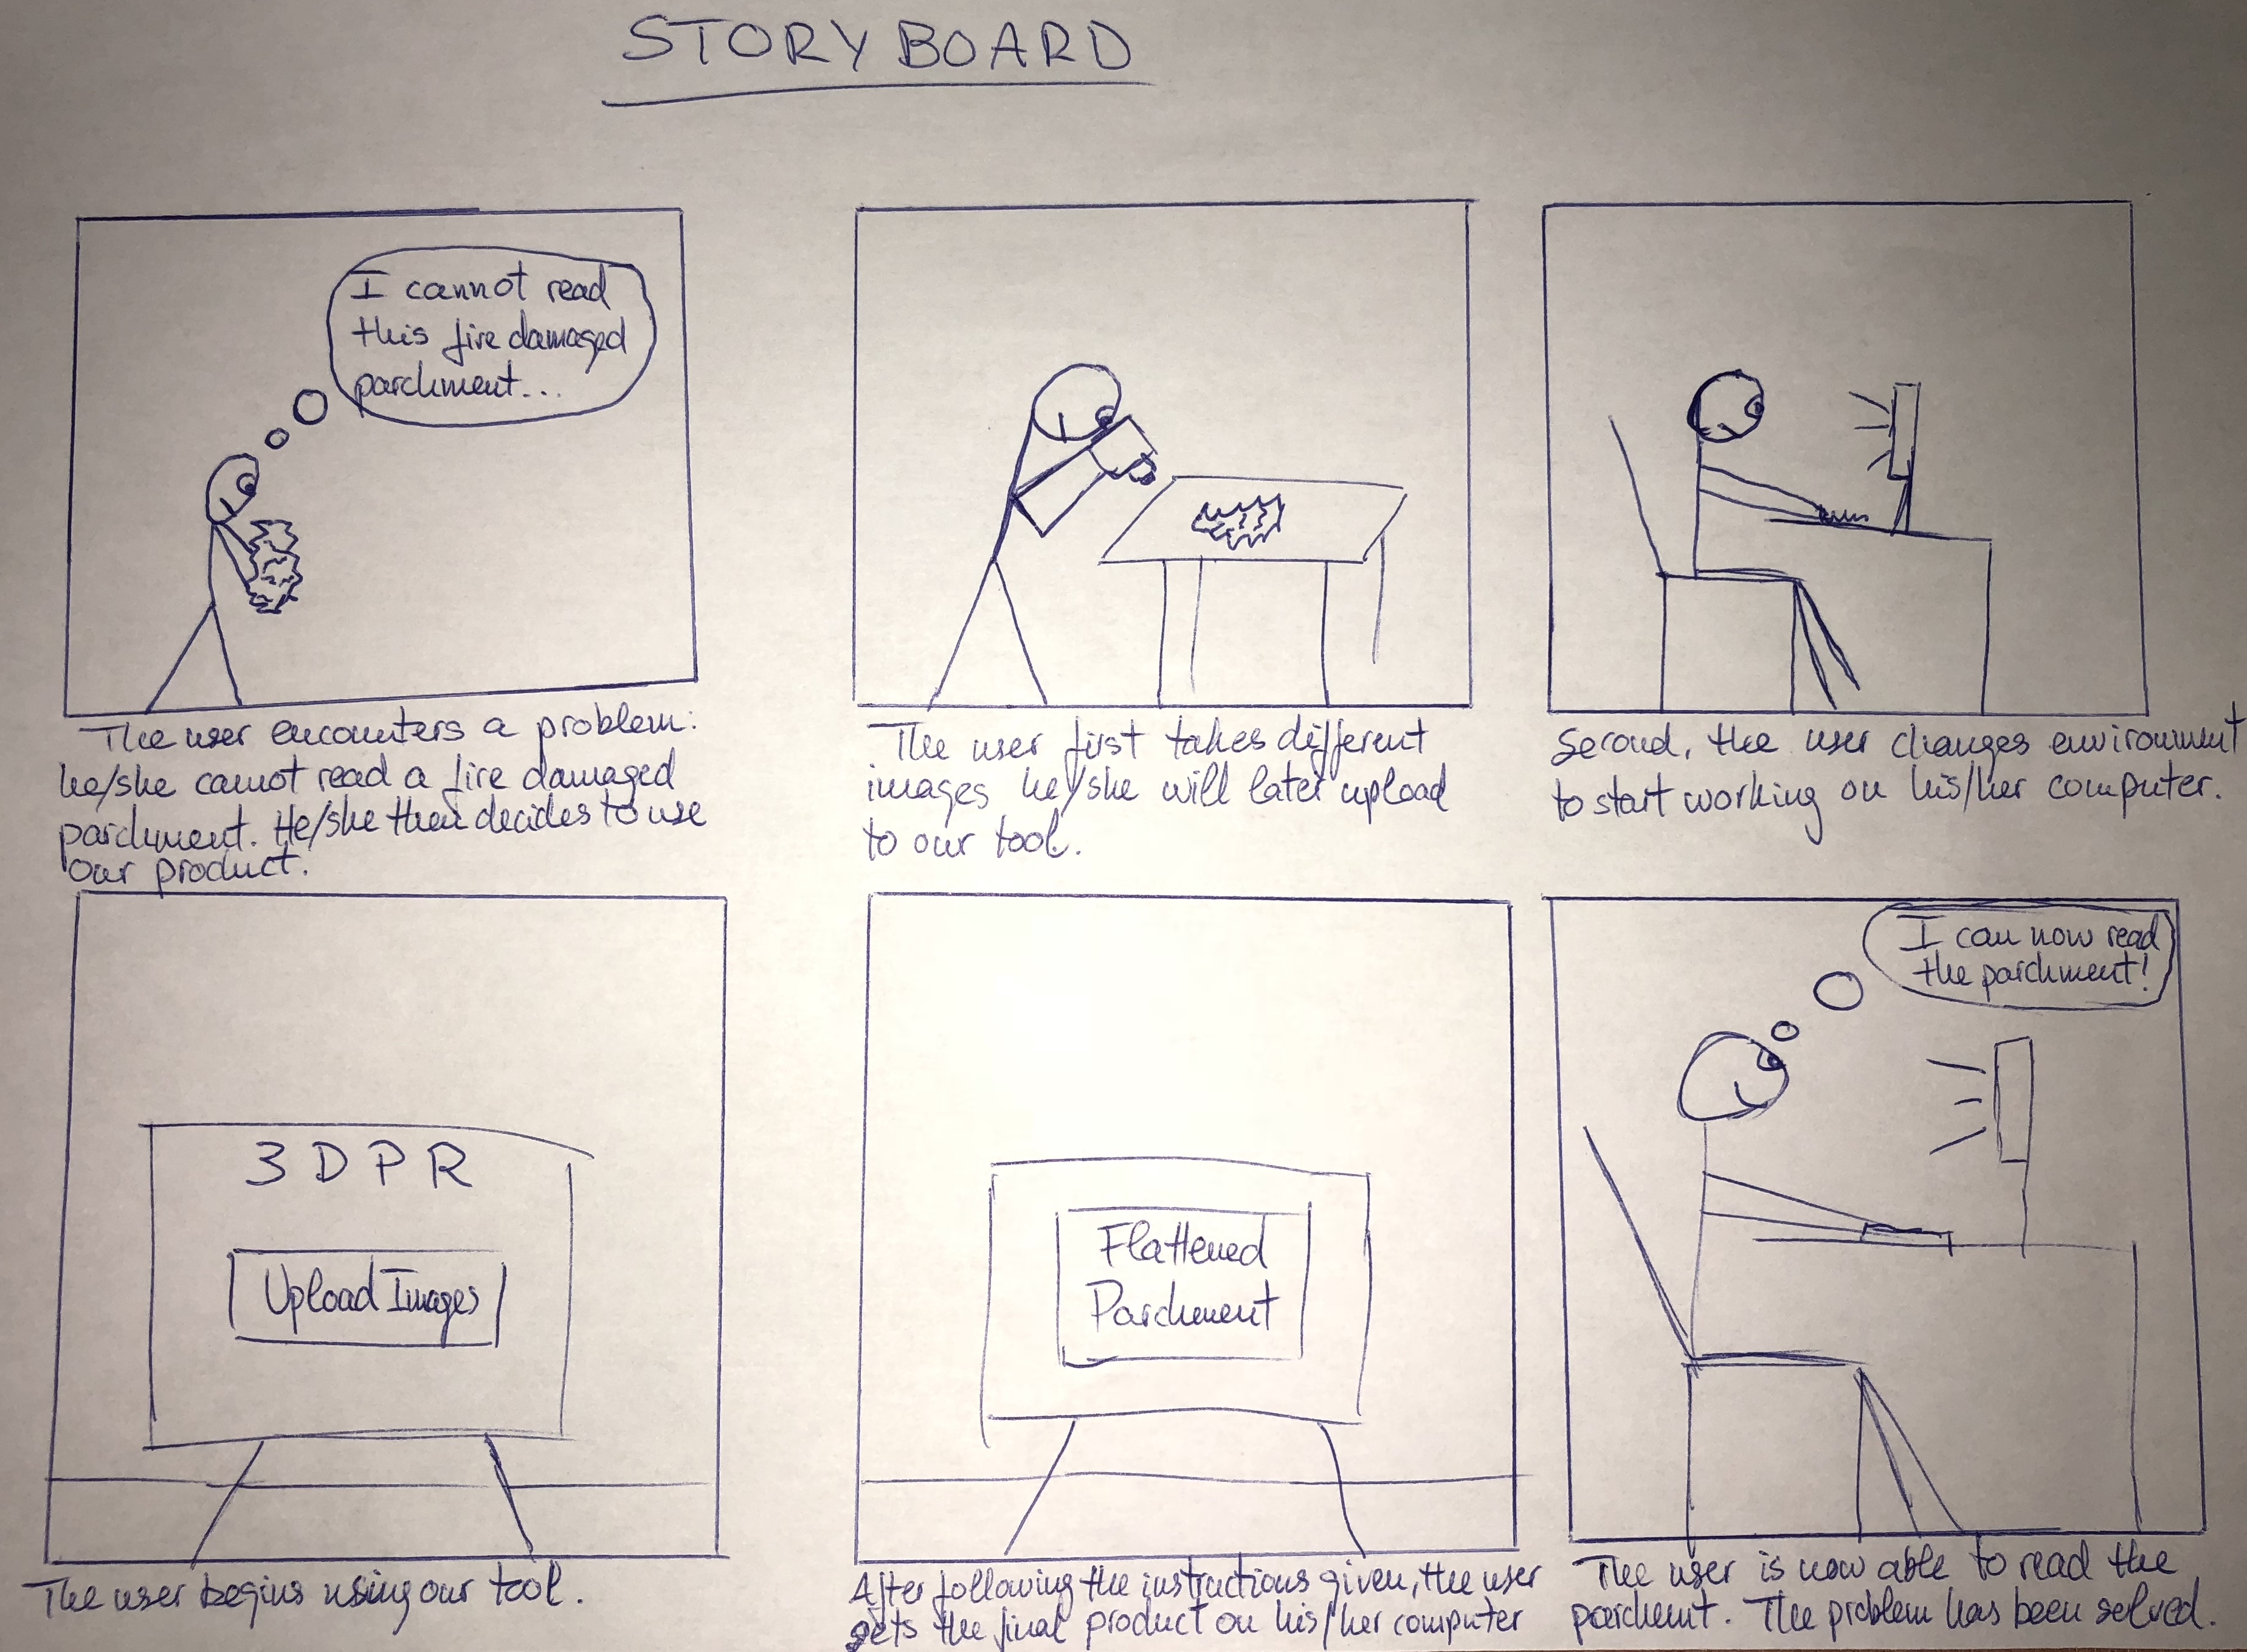 STORYBOARD
I cannot read
this fire damaged
parchment...
The user encounters a problem:
he/she cannot read a fire damaged
parchment. He/she then decides to use
our product.
The user first takes different
images he/she will later upload
to our tool.
Second, the user changes environment
to start working on his/her computer.
3DPR
Upload Images
The user begins using our tool.
Flattened
Parchment
After following the instructions given, the user
gets the final product on his/her computer
I can now read
the parchment!
The user is now able to read the
parchemt. The problem has been solved.